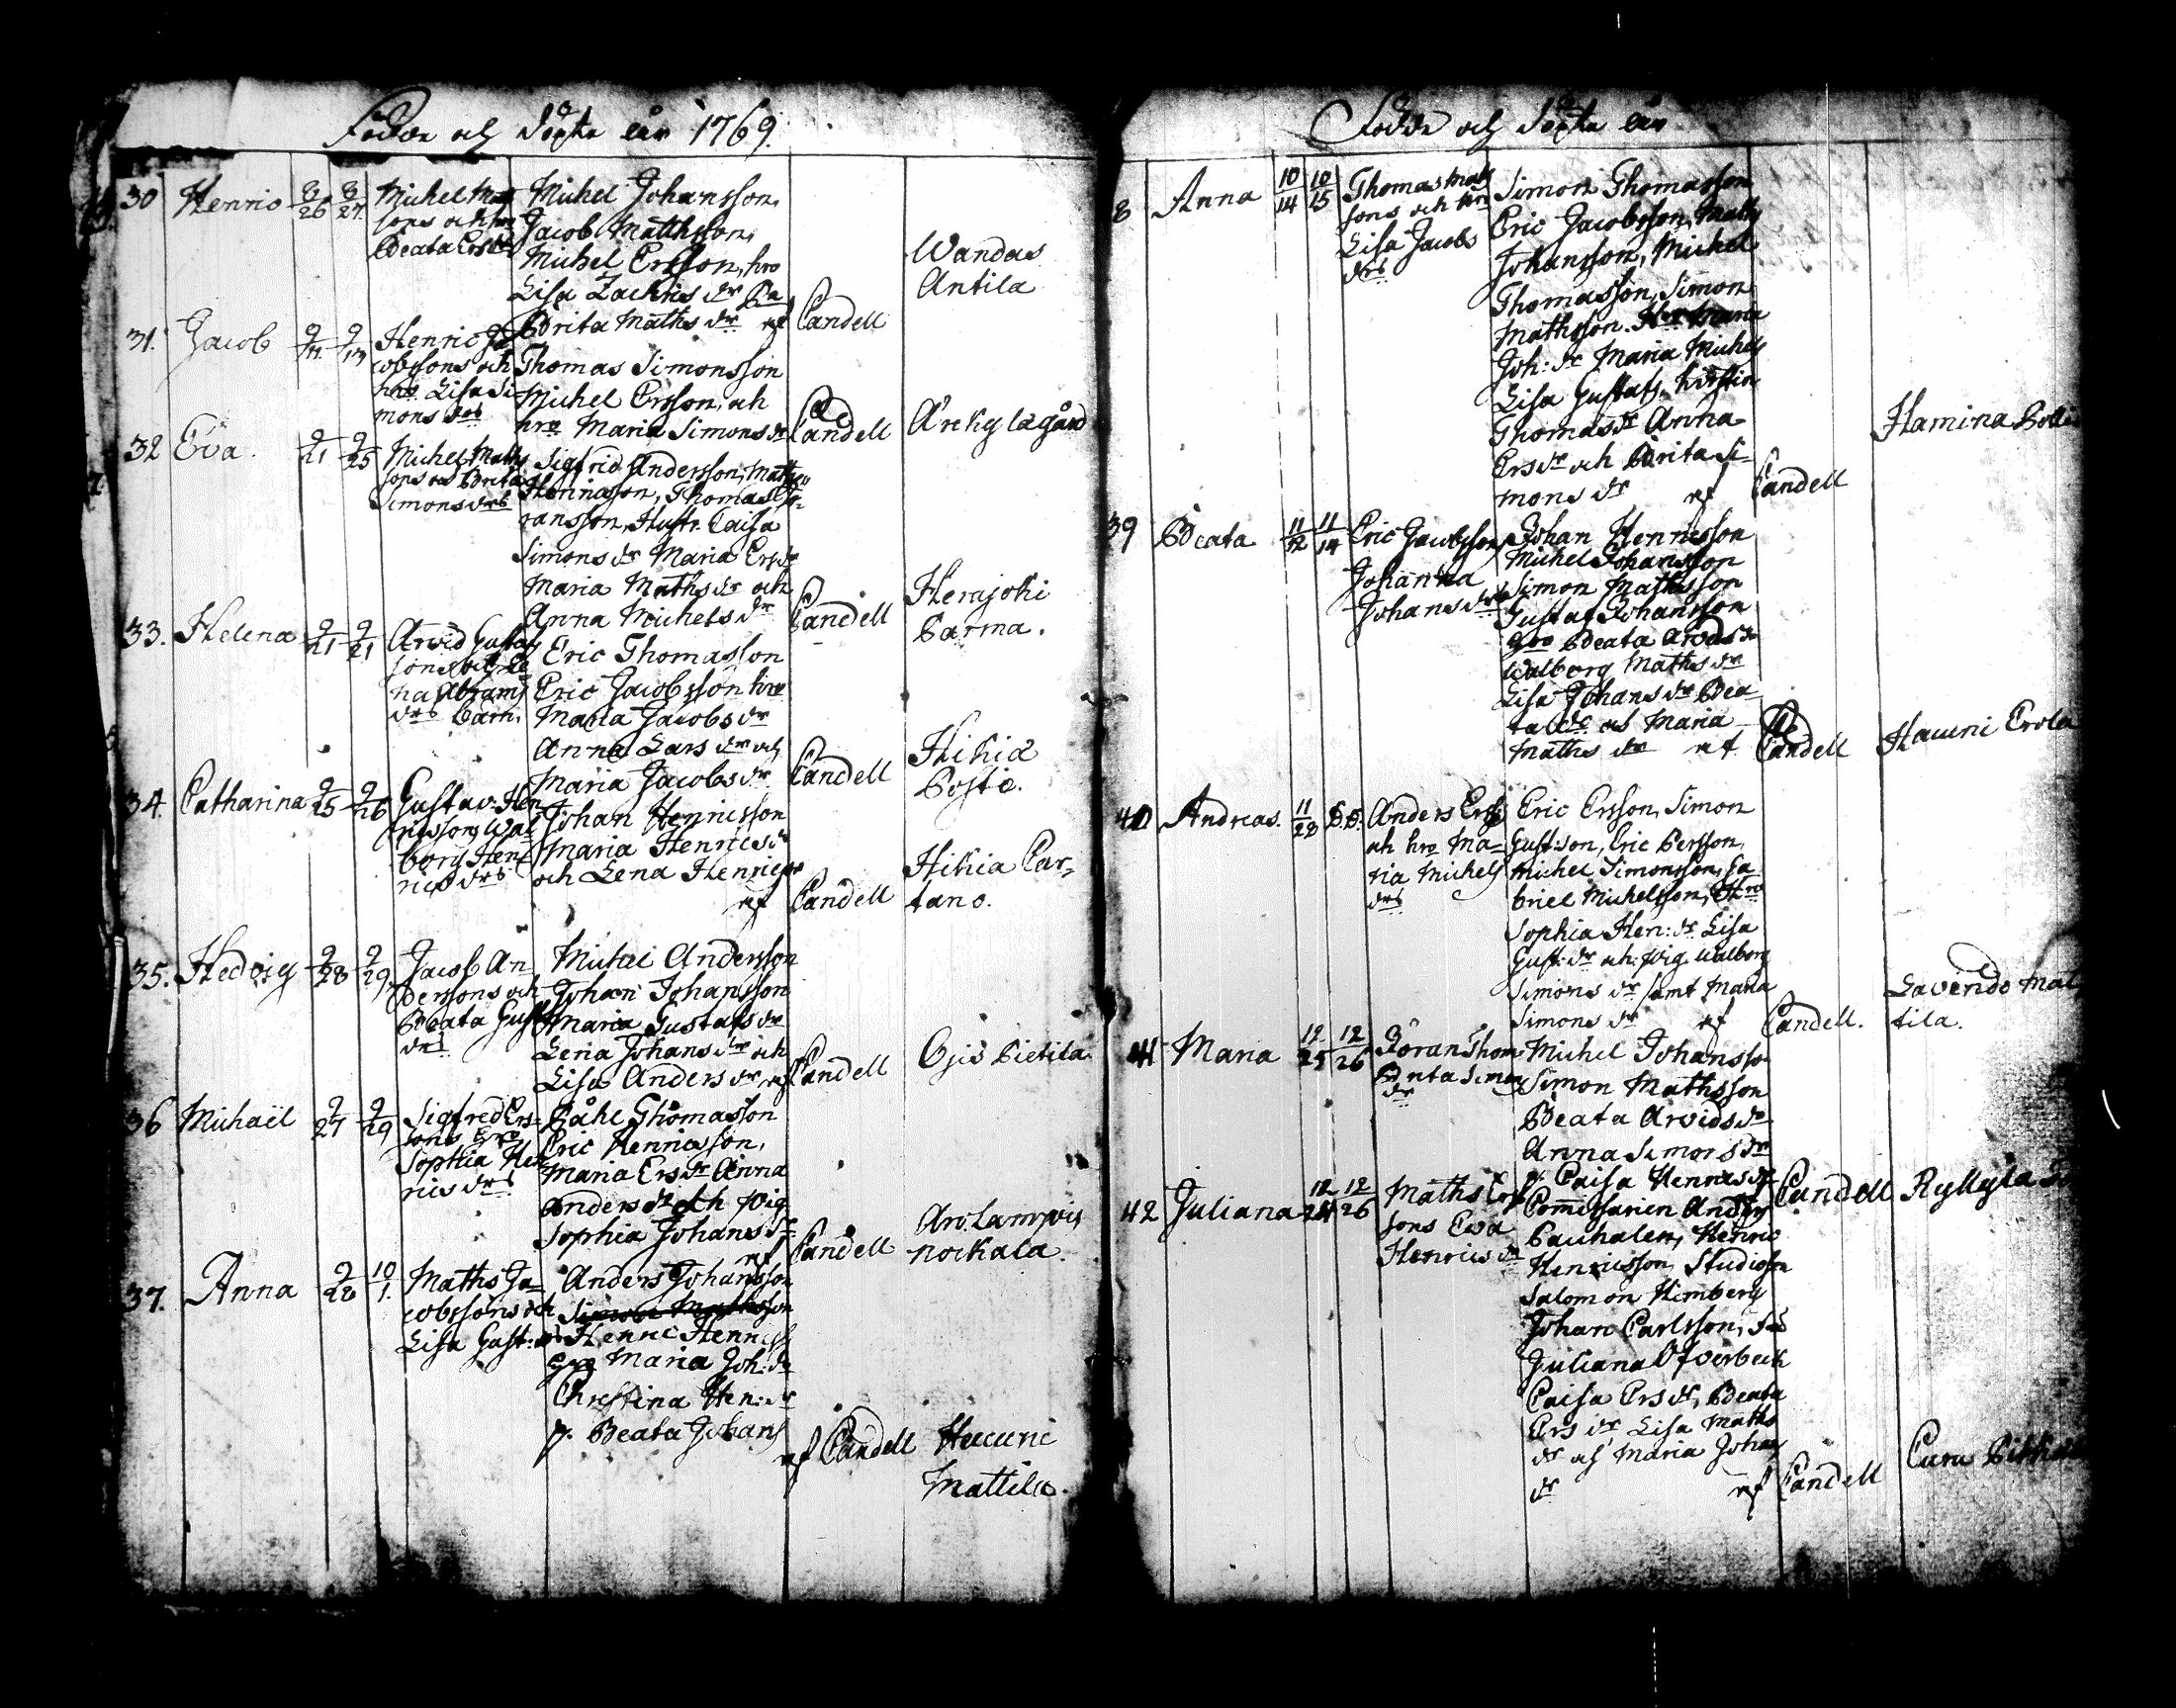 Födde och döpte åhr 1769.
30 Henric 8/26 8/27 Michel Math
sons och hro
Beata Ersdrs
Michel Johansson,
Jacob Matthsson,
Michel Ersson, hro
Lisa Zachris dr
Brita Maths dr rf Candell
Wandas
Antila
31. Jacob 9/11 9/13 Henric Ja
cobssons och
hro Lisa Si
mons drs
Thomas Simonsson
Michel Ersson, och
hro Maria Simons dr
Candell Årkylagård
32 Eva. 9/21 9/25 Michel Maths
sons och Brita
Simonsdrs
Sigfrid Andersson, Maths
Henricsson, Thomas Gö-
ransson, Hustr. Caisa
Simons dr Maria Ers dr
Maria Maths dr och
Anna Michels dr
Candell
Herajoki
Parma.
33. Helena 9/21 9/21 Arvid Gustaf
sons och He
na Abrams
drs barn.
Eric Thomasson
Eric Jacobsson hro
Maria Jacobs dr
Anna Lars dr och
Maria Jacobs dr
Candell
Hikiä
Postio.
34. Catharina 9/25 9/26 Gustav Hen
ricssons Wal
borg Hen
rics drs
Johan Henricsson
Maria Henrics dr
och Lena Henrics dr
rf Candell
Hikiä Car-
tano.
35. Hedvig 9/28 9/29 Jacob An
derssons och
Beata Gustafs
drs
Michel Andersson
Johan Johansson
Maria Gustafs dr
Lena Johans dr och
Lisa Anders dr rf
Candell Ojis Pietila
36 Michaël 9/27 9/29 Sigfred Ers-
sons hro
Sophia Hen
rics drs
Påhl Thomasson
Eric Henricsson,
Maria Ers dr Anna
Anders dr och pig.
Sophia Johans dr
rf Candell
Arolampis
nockala.
37. Anna 9/28 10/1. Maths Ja-
cobssons och
Lisa Gust: drs
Anders Johansson
Simon Mathsson
Henric Henricss
hro Maria Joh: dr
Christina Hen: dr
p. Beata Johans
rf Candell
Hucuni
Mattila.
Födde och döpte åhr
8 Anna 10/14 10/15 Thomas Maths
sons och hro
Lisa Jacobs
drs
Simon Thomasson
Eric Jacobsson, Maths
Johansson, Michel
Thomasson, Simon
Mathsson. Hro Maria
Joh: dr Maria Michels
Lisa Gustafs. Kirstin
Thomas dr Anna
Ers dr och Brita Si-
mons dr rf Candell
Hamina
39 Beata 11/12 11/14 Eric Jacobssons
Johanna
Johans drs
Johan Henricsson
Michel Johansson
Simon Mathsson
Gustaf Johansson
hro Beata Arvids dr
Walborg Maths dr
Lisa Johans dr Bea-
ta do och Maria
Maths dr rf
Candell Haucni Erola
40 Andreas. 11/28 D.D. Anders Erss
och hro Ma-
ria Michels
drs
Eric Ersson, Simon
Gust:son, Eric Persson,
Michel Simonsson, Ga-
briel Michelsson, Hro
Sophia Hen: dr Lisa
Gust: dr och: pig Walborg
Simons dr samt Maria
Simons dr rf
Candell.
Lavindo Mat
tila.
41 Maria 12/25 12/26 Jöran Thom
Brita Simons
dr
Michel Johansson
Simon Mathsson
Beata Arvids dr
Anna Simons dr
p. Caisa Henrics dr
Candell Ryttylä
42 Juliana 12/24 12/26 Maths Ers
sons Eva
Henrics dr
Commissarien Anders
Pauhalen, Henric
Henricsson, Studiosen
Salomon Himberg
Johan Carlsson,
Juliana Ofverbeck
Caisa Ers dr, Beata
Ers dr Lisa Maths
dr och Maria Johans
dr rf Candell